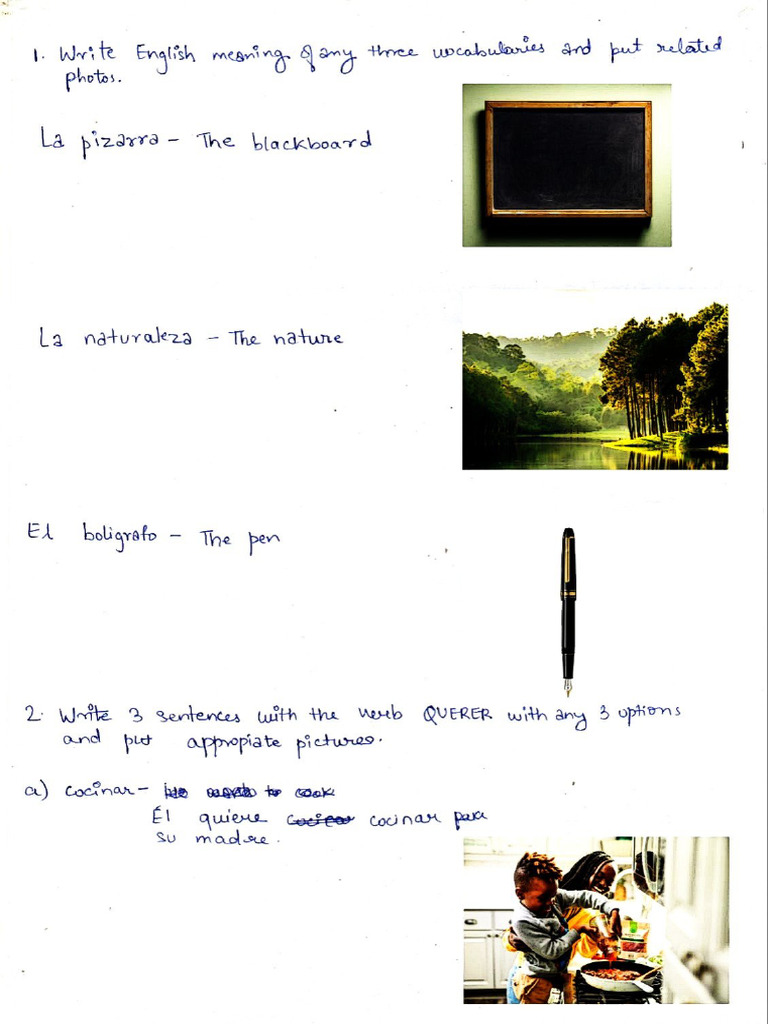 1. Write English meaning of any three vocabularies and put related
photos.
La pizarra - The blackboard
La naturaleza - The nature
El boligrafo - The pen
2. Write 3 sentences with the verb QUERER with any 3 options
and put appropiate pictures.
a) cocinar - He wants to cook
Él quiere cocinar cocinar para
su madre.